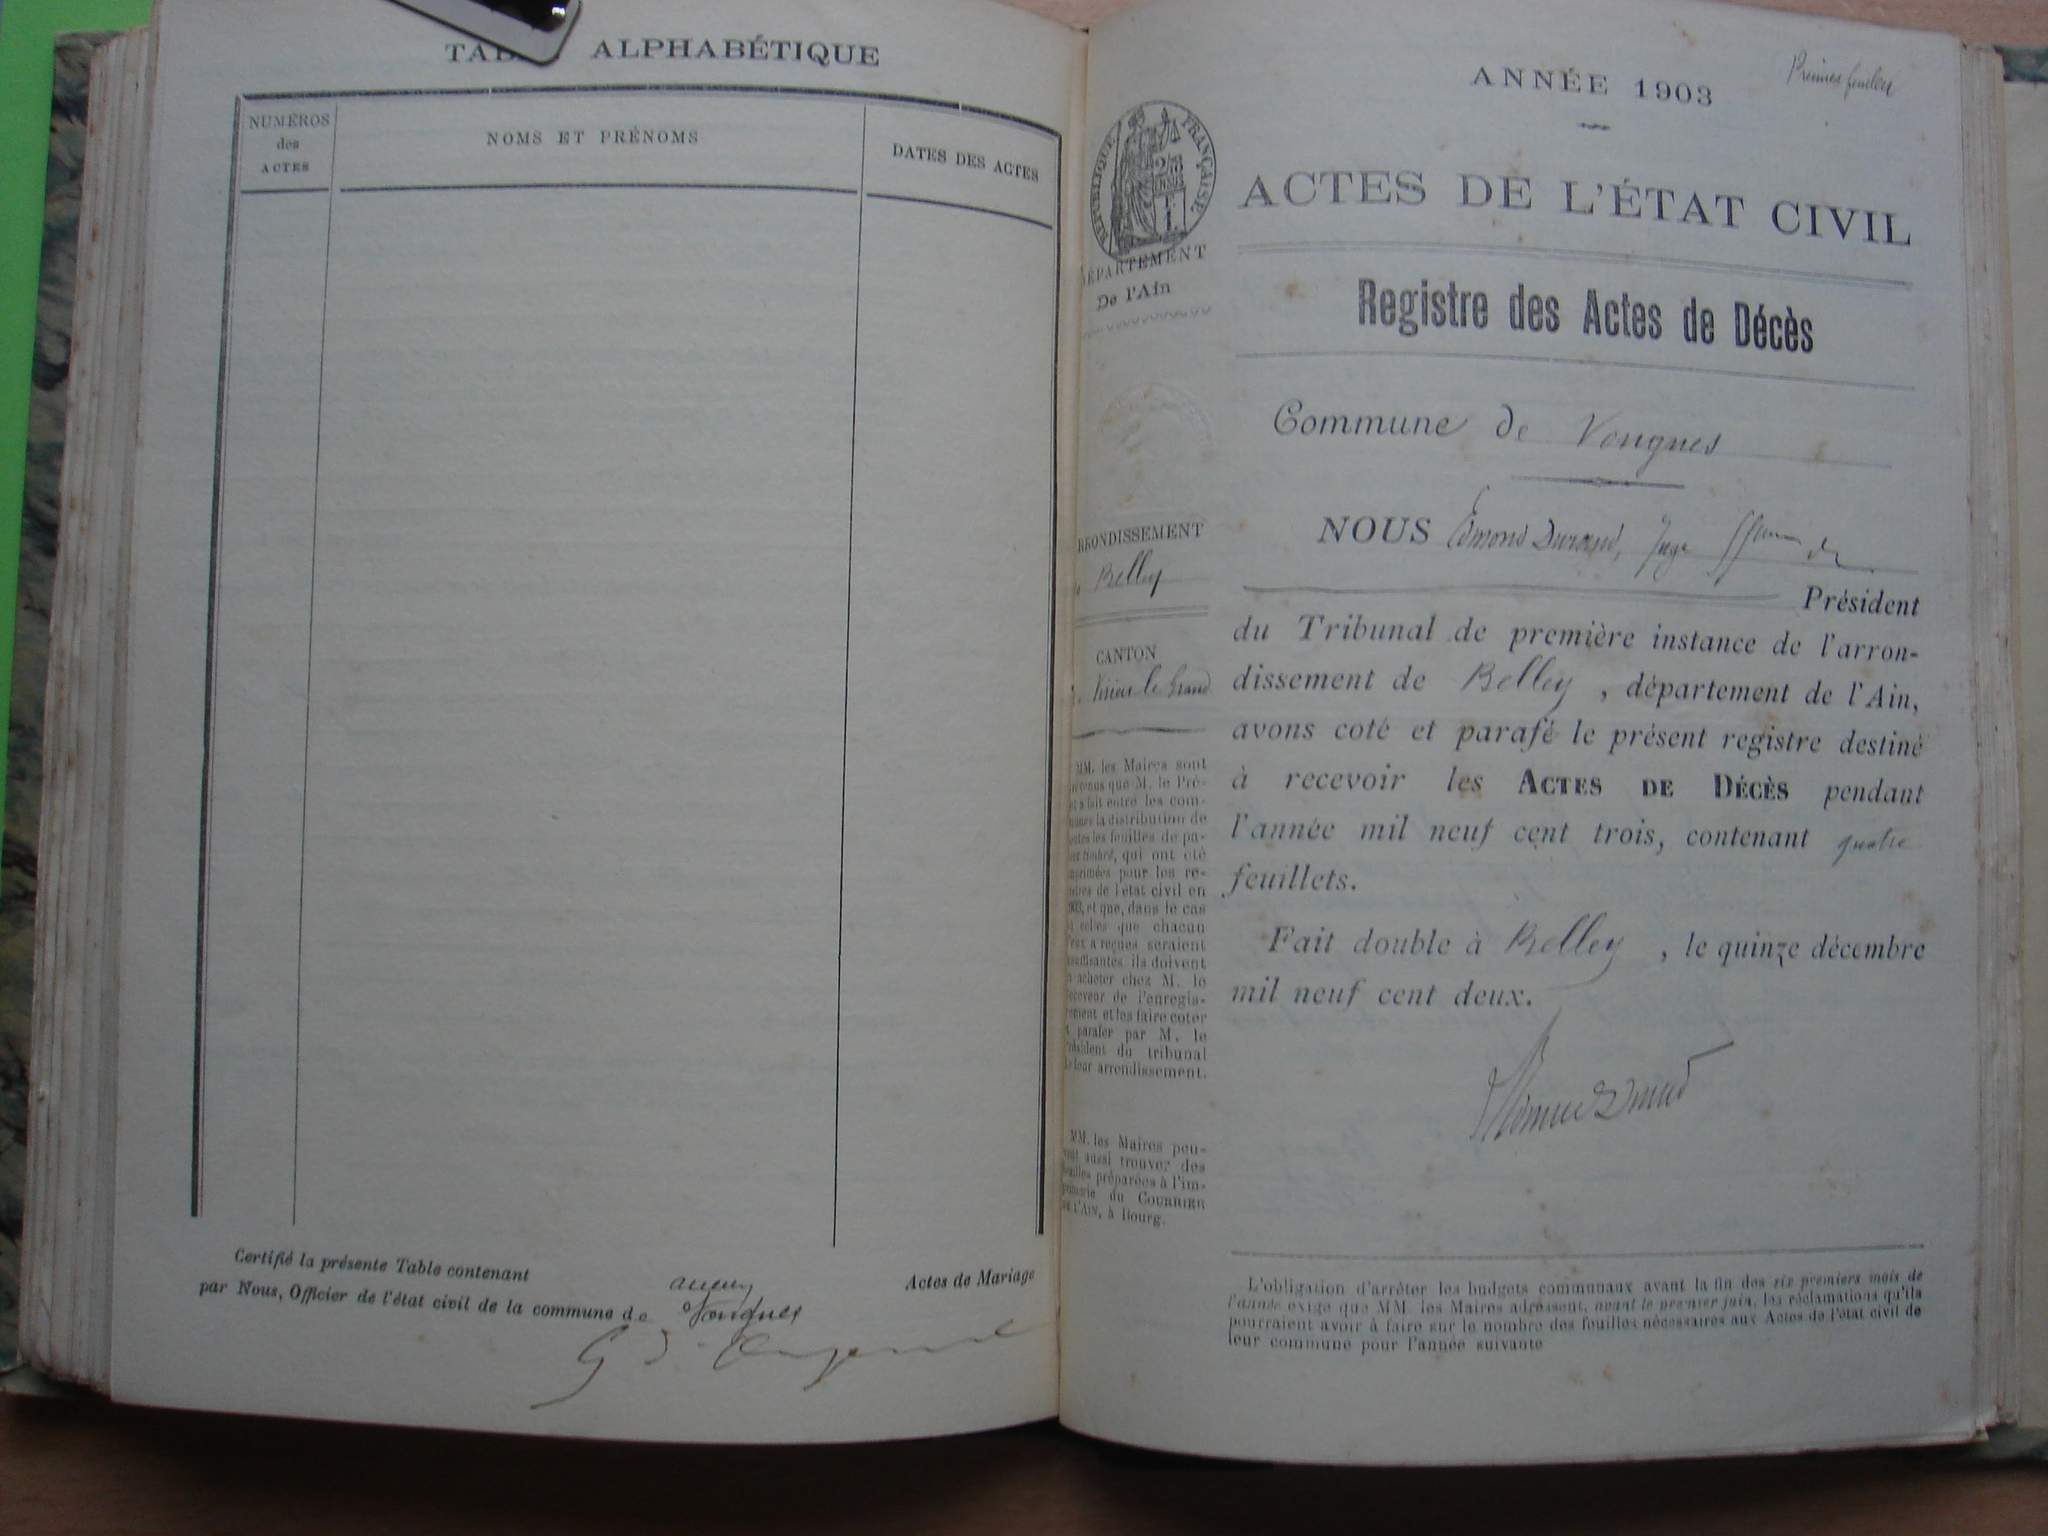 ALPHABÉTIQUE
NUMÉROS
des
ACTES
NOMS ET PRÉNOMS
DATES DES ACTES
Certifié la présente Table contenant aucun Actes de Mariage
par Nous, Officier de l'état civil de la commune de Vongnes
ANNÉE 1903
RÉPUBLIQUE FRANÇAISE
ACTES DE L'ÉTAT CIVIL
De l'Ain
Registre des Actes de Décès
Commune de Vongnes
Belley
CANTON
Virieu le Grand
NOUS Edmond Durand, Juge
Président
du Tribunal de première instance de l'arron-
dissement de Belley, département de l'Ain,
avons coté et parafé le présent registre destiné
à recevoir les ACTES DE DÉCÈS pendant
l'année mil neuf cent trois, contenant quatre
feuillets.
Fait double à Belley, le quinze décembre
mil neuf cent deux.
MM. les Maires sont
que M. le Pré-
a fait entre les com-
la distribution de
les feuilles de pa-
timbré, qui ont été
pour les re-
de l'état civil en
et que, dans le cas
celles que chacun
reçues seraient
ils doivent
acheter chez M. le
de l'enregis-
et les faire coter
parafer par M. le
du tribunal
leur arrondissement.
MM. les Maires peu-
aussi trouver des
préparées à l'im-
du COURRIER
L'AIN, à Bourg.
L'obligation d'arrêter les budgets communaux avant la fin des six premiers mois de
l'année exige que MM. les Maires adressent, avant le premier juin, les réclamations qu'ils
pourraient avoir à faire sur le nombre des feuilles nécessaires aux Actes de l'état civil de
leur commune pour l'année suivante